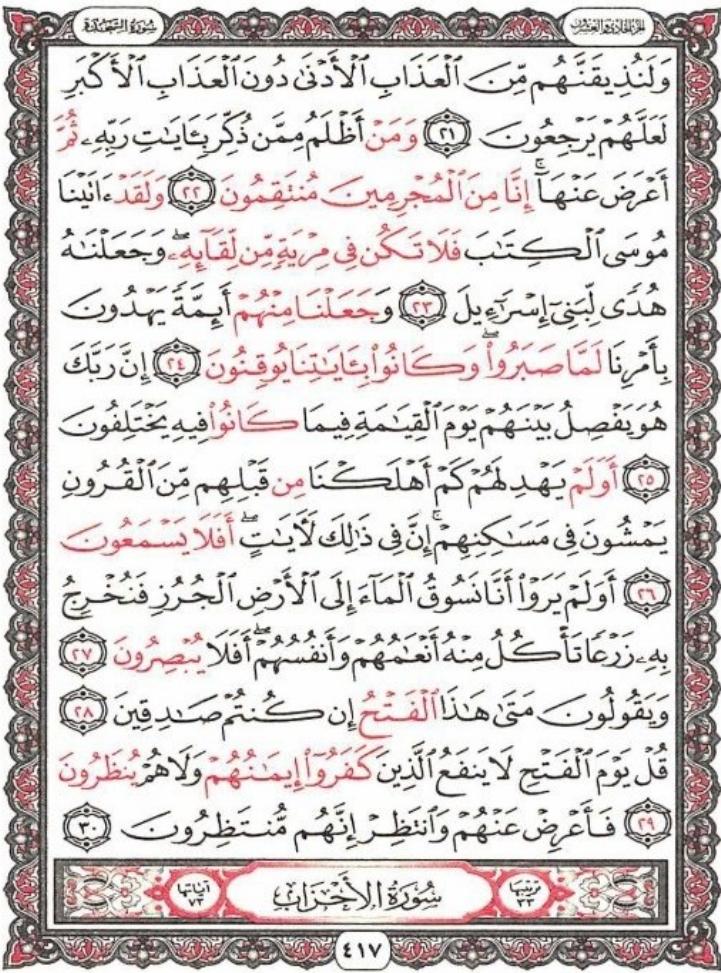 الجزء الحادي والعشرون
سورة السجدة
وَلَنُذِيقَنَّهُم مِّنَ ٱلْعَذَابِ ٱلْأَدْنَىٰ دُونَ ٱلْعَذَابِ ٱلْأَكْبَرِ
لَعَلَّهُمْ يَرْجِعُونَ ٢١ وَمَنْ أَظْلَمُ مِمَّن ذُكِّرَ بِـَٔايَٰتِ رَبِّهِۦ ثُمَّ
أَعْرَضَ عَنْهَآ ۚ إِنَّا مِنَ ٱلْمُجْرِمِينَ مُنتَقِمُونَ ٢٢ وَلَقَدْ ءَاتَيْنَا
مُوسَى ٱلْكِتَٰبَ فَلَا تَكُن فِى مِرْيَةٍ مِّن لِّقَآئِهِۦ ۖ وَجَعَلْنَٰهُ
هُدًى لِّبَنِىٓ إِسْرَٰٓءِيلَ ٢٣ وَجَعَلْنَا مِنْهُمْ أَئِمَّةً يَهْدُونَ
بِأَمْرِنَا لَمَّا صَبَرُوا۟ ۖ وَكَانُوا۟ بِـَٔايَٰتِنَا يُوقِنُونَ ٢٤ إِنَّ رَبَّكَ
هُوَ يَفْصِلُ بَيْنَهُمْ يَوْمَ ٱلْقِيَٰمَةِ فِيمَا كَانُوا۟ فِيهِ يَخْتَلِفُونَ
٢٥ أَوَلَمْ يَهْدِ لَهُمْ كَمْ أَهْلَكْنَا مِن قَبْلِهِم مِّنَ ٱلْقُرُونِ
يَمْشُونَ فِى مَسَٰكِنِهِمْ ۚ إِنَّ فِى ذَٰلِكَ لَءَايَٰتٍ ۖ أَفَلَا يَسْمَعُونَ
٢٦ أَوَلَمْ يَرَوْا۟ أَنَّا نَسُوقُ ٱلْمَآءَ إِلَى ٱلْأَرْضِ ٱلْجُرُزِ فَنُخْرِجُ
بِهِۦ زَرْعًا تَأْكُلُ مِنْهُ أَنْعَٰمُهُمْ وَأَنفُسُهُمْ ۖ أَفَلَا يُبْصِرُونَ ٢٧
وَيَقُولُونَ مَتَىٰ هَٰذَا ٱلْفَتْحُ إِن كُنتُمْ صَٰدِقِينَ ٢٨
قُلْ يَوْمَ ٱلْفَتْحِ لَا يَنفَعُ ٱلَّذِينَ كَفَرُوٓا۟ إِيمَٰنُهُمْ وَلَا هُمْ يُنظَرُونَ
٢٩ فَأَعْرِضْ عَنْهُمْ وَٱنتَظِرْ إِنَّهُم مُّنتَظِرُونَ ٣٠
ترتيبها ٣٣ سُورَةُ الأَحْزَابِ آياتها ٧٣
٤١٧